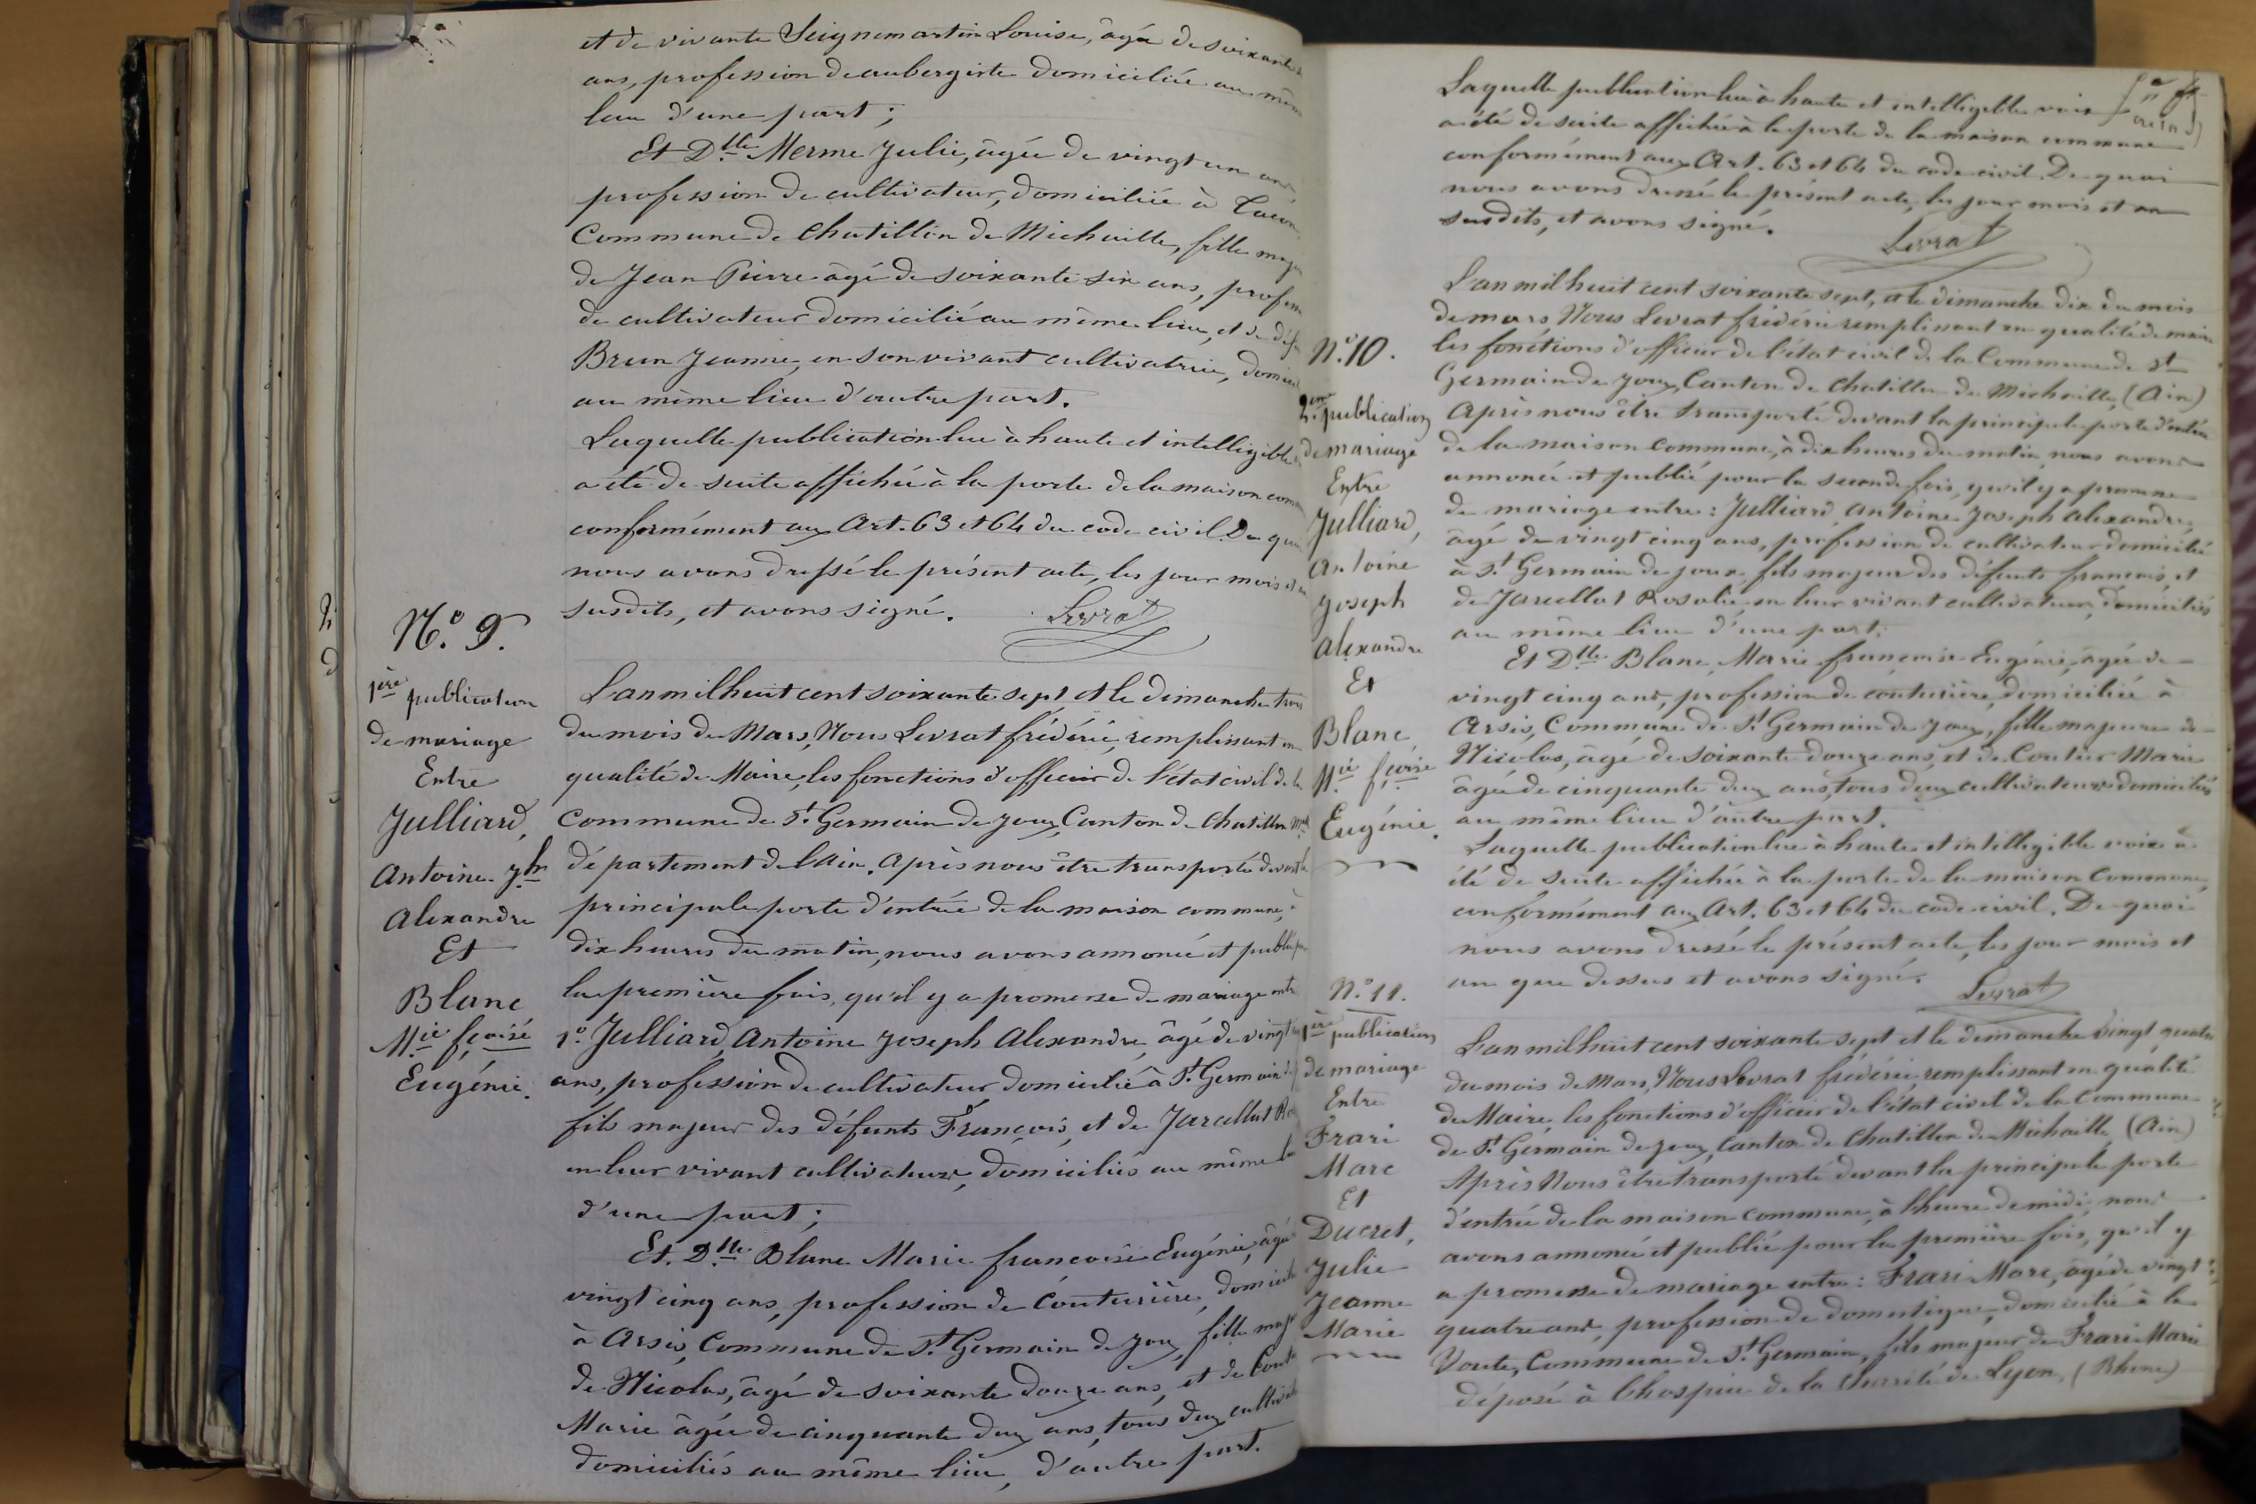 et de vivante Seignemartin Louise, âgée de soixante
ans, profession de aubergiste domiciliée au même
lieu d'une part ;
Et Dlle Merme Julie, âgée de vingt un ans
profession de cultivateur, domiciliée à Tacon
Commune de Chatillon de Michaille, fille maj
de Jean Pierre âgé de soixante six ans, profess
de cultivateur domicilié au même lieu, et de déf
Brun Jeanne, en son vivant cultivatrice, domici
au même lieu d'autre part.
Laquelle publication lue à haute et intelligible
a été de suite affichée à la porte de la maison com
conformément aux Art. 63 et 64 du code civil. De quoi
nous avons dressé le présent acte, les jour mois et an
susdits, et avons signé. Levrat
N.o 9.
1ère publication
de mariage
Entre
Julliard,
Antoine Jph
Alexandre
Et
Blanc
Mie fçoise
Eugénie.
L'an mil huit cent soixante sept et le dimanche trois
du mois de Mars, Nous Levrat frédéric, remplissant en
qualité de Maire, les fonctions d'officier de l'état civil de la
Commune de St Germain de Joux, Canton de Chatillon
département de l'Ain. Après nous être transporté devant la
principale porte d'entrée de la maison commune, à
dix heures du matin, nous avons annoncé et publié pr
la première fois, qu'il y a promesse de mariage entre
1o Julliard, Antoine Joseph Alexandre, âgé de vingt
ans, profession de cultivateur domicilié à St Germain de J
fils majeur des défunts François, et de Jarcellat Ros
en leur vivant cultivateurs, domiciliés au même lieu
d'une part ;
Et. Dlle Blanc Marie francoise Eugénie, âgée
vingt cinq ans, profession de couturière, domicil
à Arsis, Commune de St Germain de Joux, fille maj
de Nicolas, âgé de soixante douze ans, et de Coutu
Marie âgée de cinquante deux ans, tous deux cultivat
domiciliés au même lieu, d'autre part.
Laquelle publication lue à haute et intelligible voix
a été de suite affichée à la porte de la maison commune
conformément aux Art. 63 et 64 du code civil. De quoi
nous avons dressé le présent acte, les jour mois et an
susdits, et avons signé.
Levrat
N.o 10.
2me publication
de mariage
Entre
Julliard,
Antoine
Joseph
Alexandre
Et
Blanc,
Mie fçoise
Eugénie.
L'an mil huit cent soixante sept, et le dimanche dix du mois
de mars Nous Levrat frédéric remplissant en qualité de maire
les fonctions d'officier de l'état civil de la Commune de St
Germain de Joux, Canton de Chatillon de Michaille, (Ain)
Après nous être transporté devant la principale porte d'entrée
de la maison commune, à dix heures du matin, nous avons
annoncé et publié pour la seconde fois, qu'il y a promesse
de mariage entre : Julliard, Antoine Joseph Alexandre,
âgé de vingt cinq ans, profession de cultivateur domicilié
à St Germain de joux, fils majeur des défunts francois, et
de Jarcellat Rosalie en leur vivant cultivateurs, domiciliés
au même lieu d'une part,
Et Dlle Blanc, Marie françoise Eugénie, âgée de
vingt cinq ans, profession de couturière, domiciliée à
Arsis, Commune de St Germain de Joux, fille majeure de
Nicolas, âgé de soixante douze ans, et de Coutier Marie
âgée de cinquante deux ans, tous deux cultivateurs domiciliés
au même lieu d'autre part.
Laquelle publication lue à haute et intelligible voix a
été de suite affichée à la porte de la maison Commune,
conformément aux Art. 63 et 64 du code civil. De quoi
nous avons dressé le présent acte, les jour mois et
an que dessus et avons signé.
Levrat
N.o 11.
1ère publication
de mariage
Entre
Frari
Marc
Et
Ducret,
Julie
Jeanne
Marie
L'an mil huit cent soixante sept et le dimanche vingt quatre
du mois de Mars, Nous Levrat frédéric, remplissant en qualité
de Maire, les fonctions d'officier de l'état civil de la Commune
de St Germain de Joux, Canton de Chatillon de Michaille, (Ain)
Après Nous être transporté devant la principale porte
d'entrée de la maison commune, à l'heure de midi, nous
avons annoncé et publié pour la première fois, qu'il y
a promesse de mariage entre : Frari Marc, âgé de vingt
quatre ans, profession de domestique, domicilié à la
Voute, Commune de St Germain, fils majeur de Frari Marie
déposé à l'hospice de la Charité de Lyon, (Rhône)